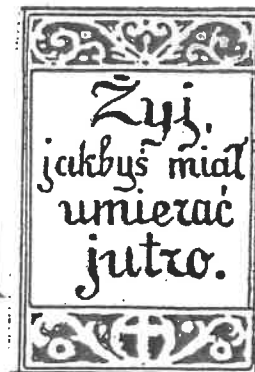 Żyj,
jakbyś miał
umierać
jutro.